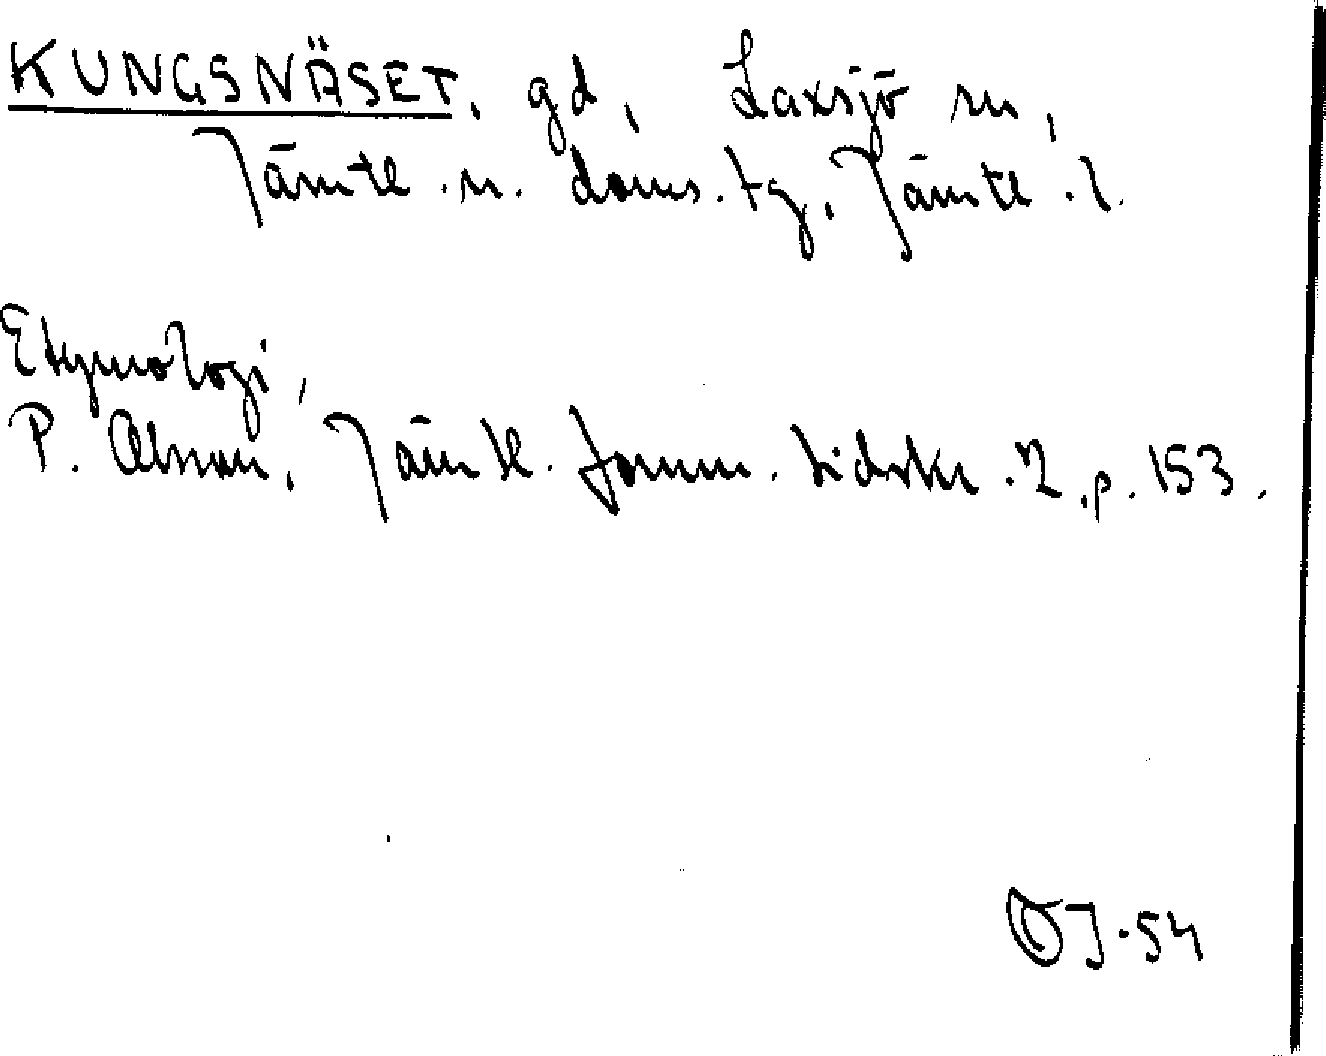 KUNGSNÄSET, gd, Laxsjö sn,
Jämtl. n. doms. tg, Jämtl. l.
Etymologi,
P. Olsson, Jämtl. fornm. tidskr. 2, p. 153.
OJ. 54